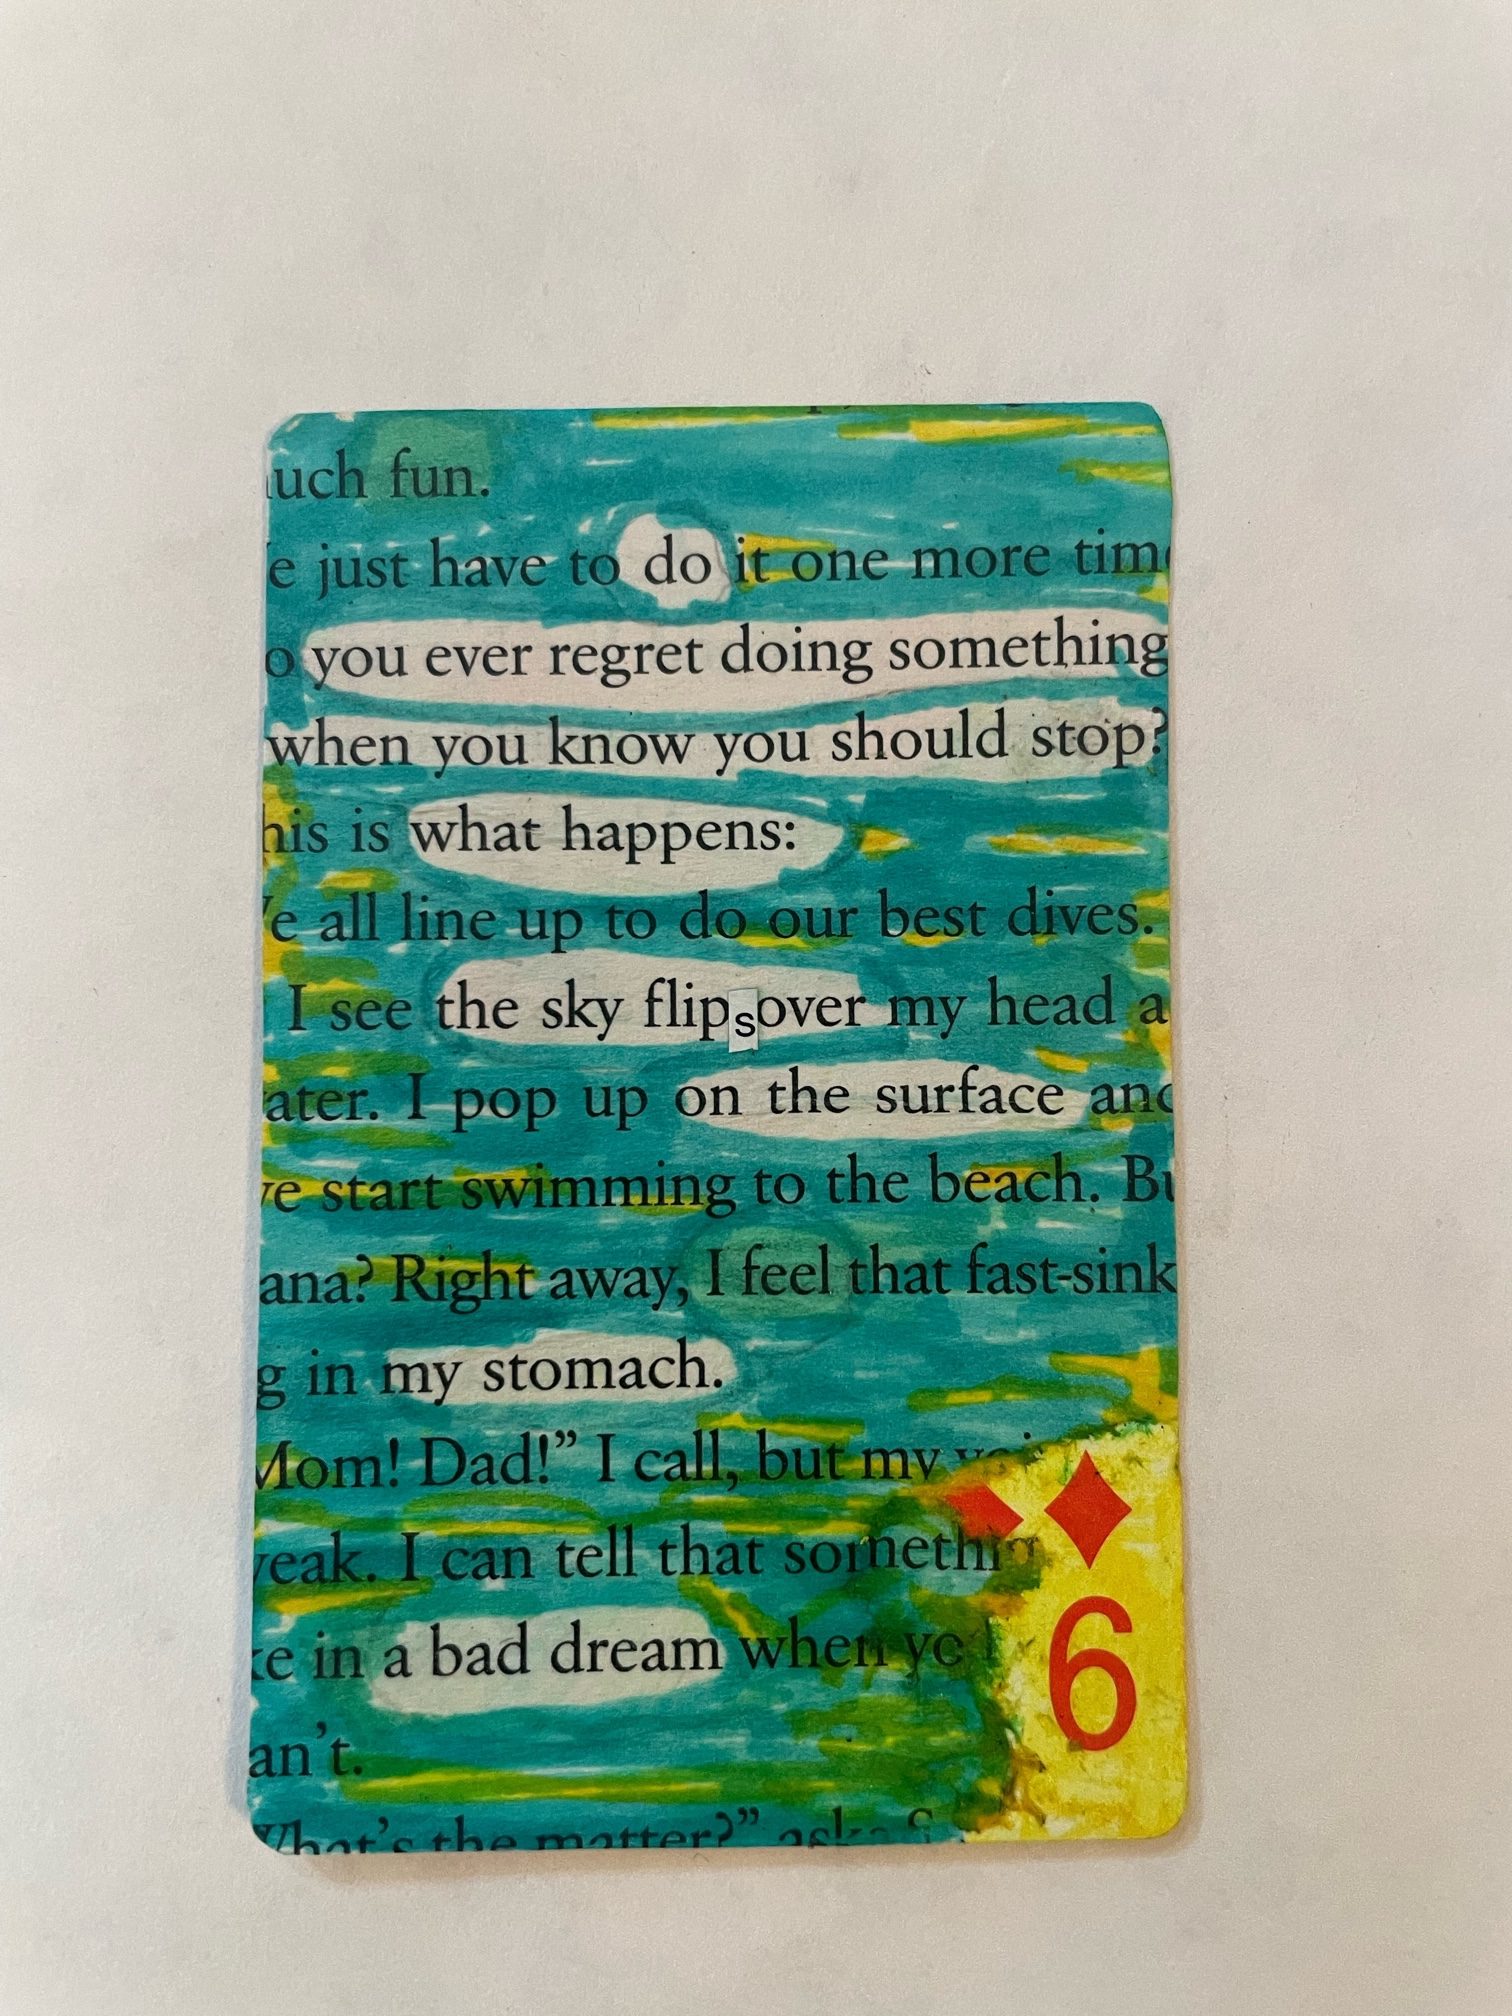 uch fun.
e just have to do it one more time
o you ever regret doing something
when you know you should stop?
his is what happens:
e all line up to do our best dives.
I see the sky flips over my head a
ater. I pop up on the surface and
ve start swimming to the beach. Bu
ana? Right away, I feel that fast-sink
g in my stomach.
Mom! Dad!” I call, but my
weak. I can tell that someth
ke in a bad dream when
an't.
What's the matter?”
6